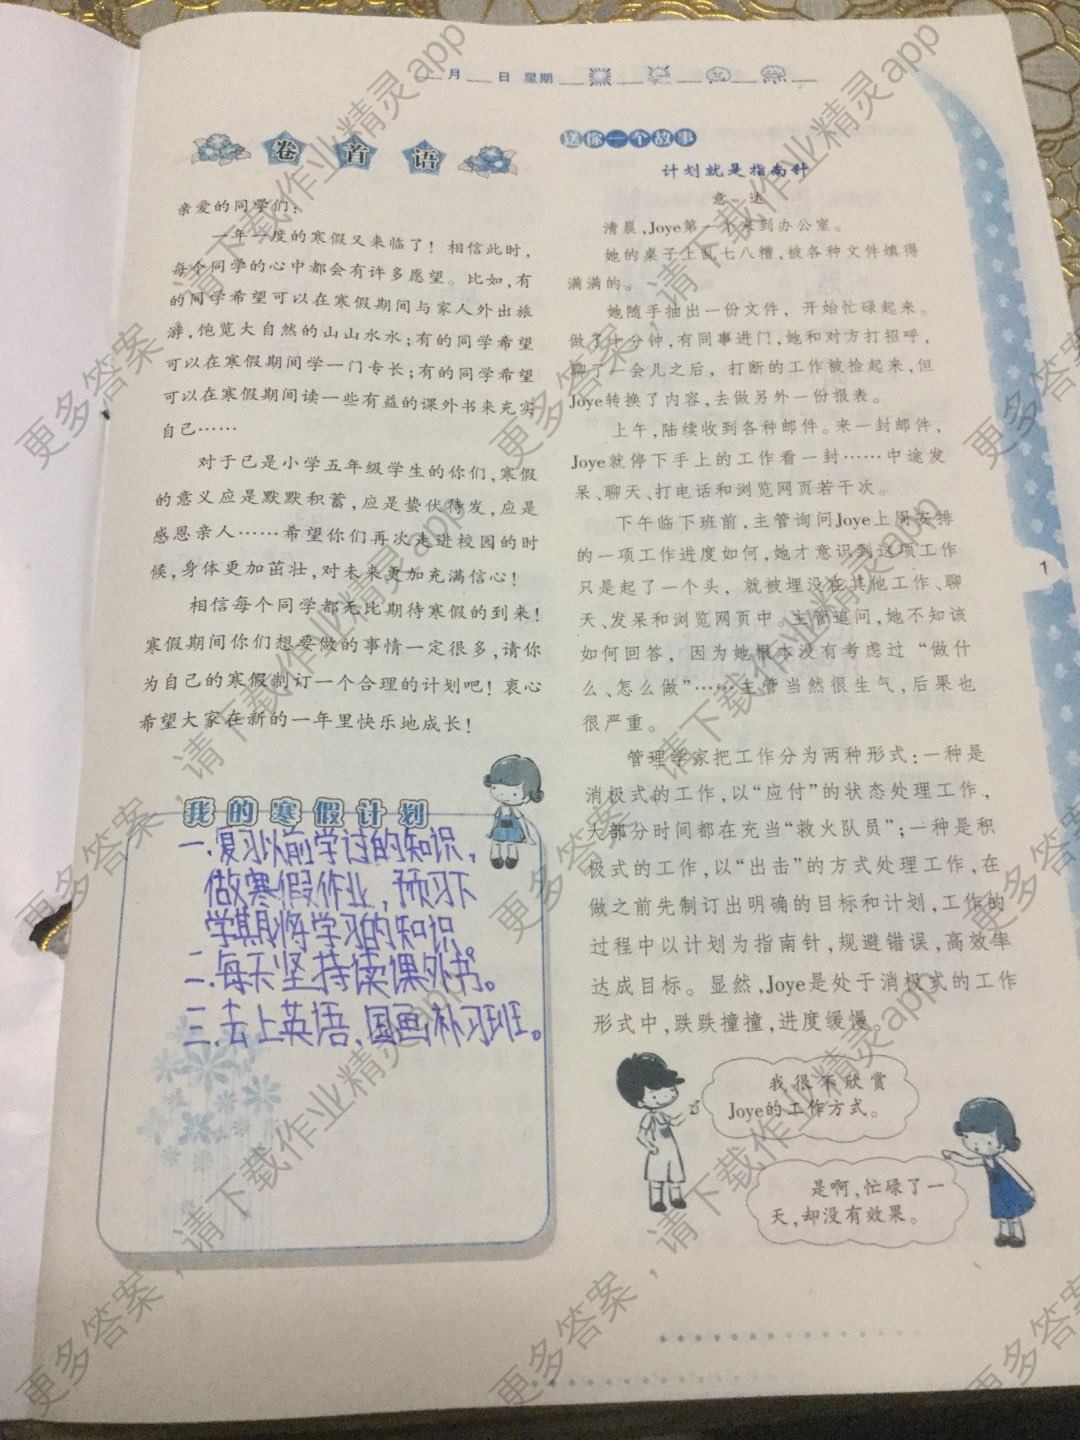 月 日 星期
卷首语
亲爱的同学们：
一年一度的寒假又来临了！相信此时，
每个同学的心中都会有许多愿望。比如，有
的同学希望可以在寒假期间与家人外出旅
游，饱览大自然的山山水水；有的同学希望
可以在寒假期间学一门专长；有的同学希望
可以在寒假期间读一些有益的课外书来充实
自己……
对于已是小学五年级学生的你们，寒假
的意义应是默默积蓄，应是蛰伏待发，应是
感恩亲人……希望你们再次走进校园的时
候，身体更加茁壮，对未来更加充满信心！
相信每个同学都无比期待寒假的到来！
寒假期间你们想要做的事情一定很多，请你
为自己的寒假制订一个合理的计划吧！衷心
希望大家在新的一年里快乐地成长！
我的寒假计划
一.复习以前学过的知识，
做寒假作业，预习下
学期将学习的知识。
二.每天坚持读课外书。
三.去上英语、国画补习班。
送你一个故事
计划就是指南针
意 达
清晨，Joye第一个来到办公室。
她的桌子上乱七八糟，被各种文件填得
满满的。
她随手抽出一份文件，开始忙碌起来。
做了十分钟，有同事进门，她和对方打招呼，
聊了一会儿之后，打断的工作被捡起来，但
Joye转换了内容，去做另外一份报表。
上午，陆续收到各种邮件。来一封邮件，
Joye就停下手上的工作看一封……中途发
呆、聊天、打电话和浏览网页若干次。
下午临下班前，主管询问Joye上周安排
的一项工作进度如何，她才意识到这项工作
只是起了一个头，就被埋没在其他工作、聊
天、发呆和浏览网页中。主管追问，她不知该
如何回答，因为她根本没有考虑过“做什
么、怎么做”……主管当然很生气，后果也
很严重。
管理学家把工作分为两种形式：一种是
消极式的工作，以“应付”的状态处理工作，
大部分时间都在充当“救火队员”；一种是积
极式的工作，以“出击”的方式处理工作，在
做之前先制订出明确的目标和计划，工作的
过程中以计划为指南针，规避错误，高效率
达成目标。显然，Joye是处于消极式的工作
形式中，跌跌撞撞，进度缓慢。
我很不欣赏
Joye的工作方式。
是啊，忙碌了一
天，却没有效果。
1
更多答案，请下载作业精灵app
更多答案，请下载作业精灵app
更多答案，请下载作业精灵app
更多答案，请下载作业精灵app
更多答案，请下载作业精灵app
更多答案，请下载作业精灵app